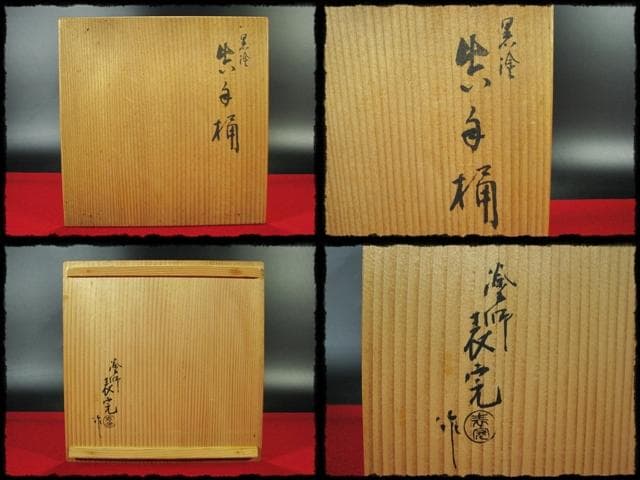 黒塗
真手桶
黒塗
真手桶
塗師
表完
作
塗師
表完
作
表完